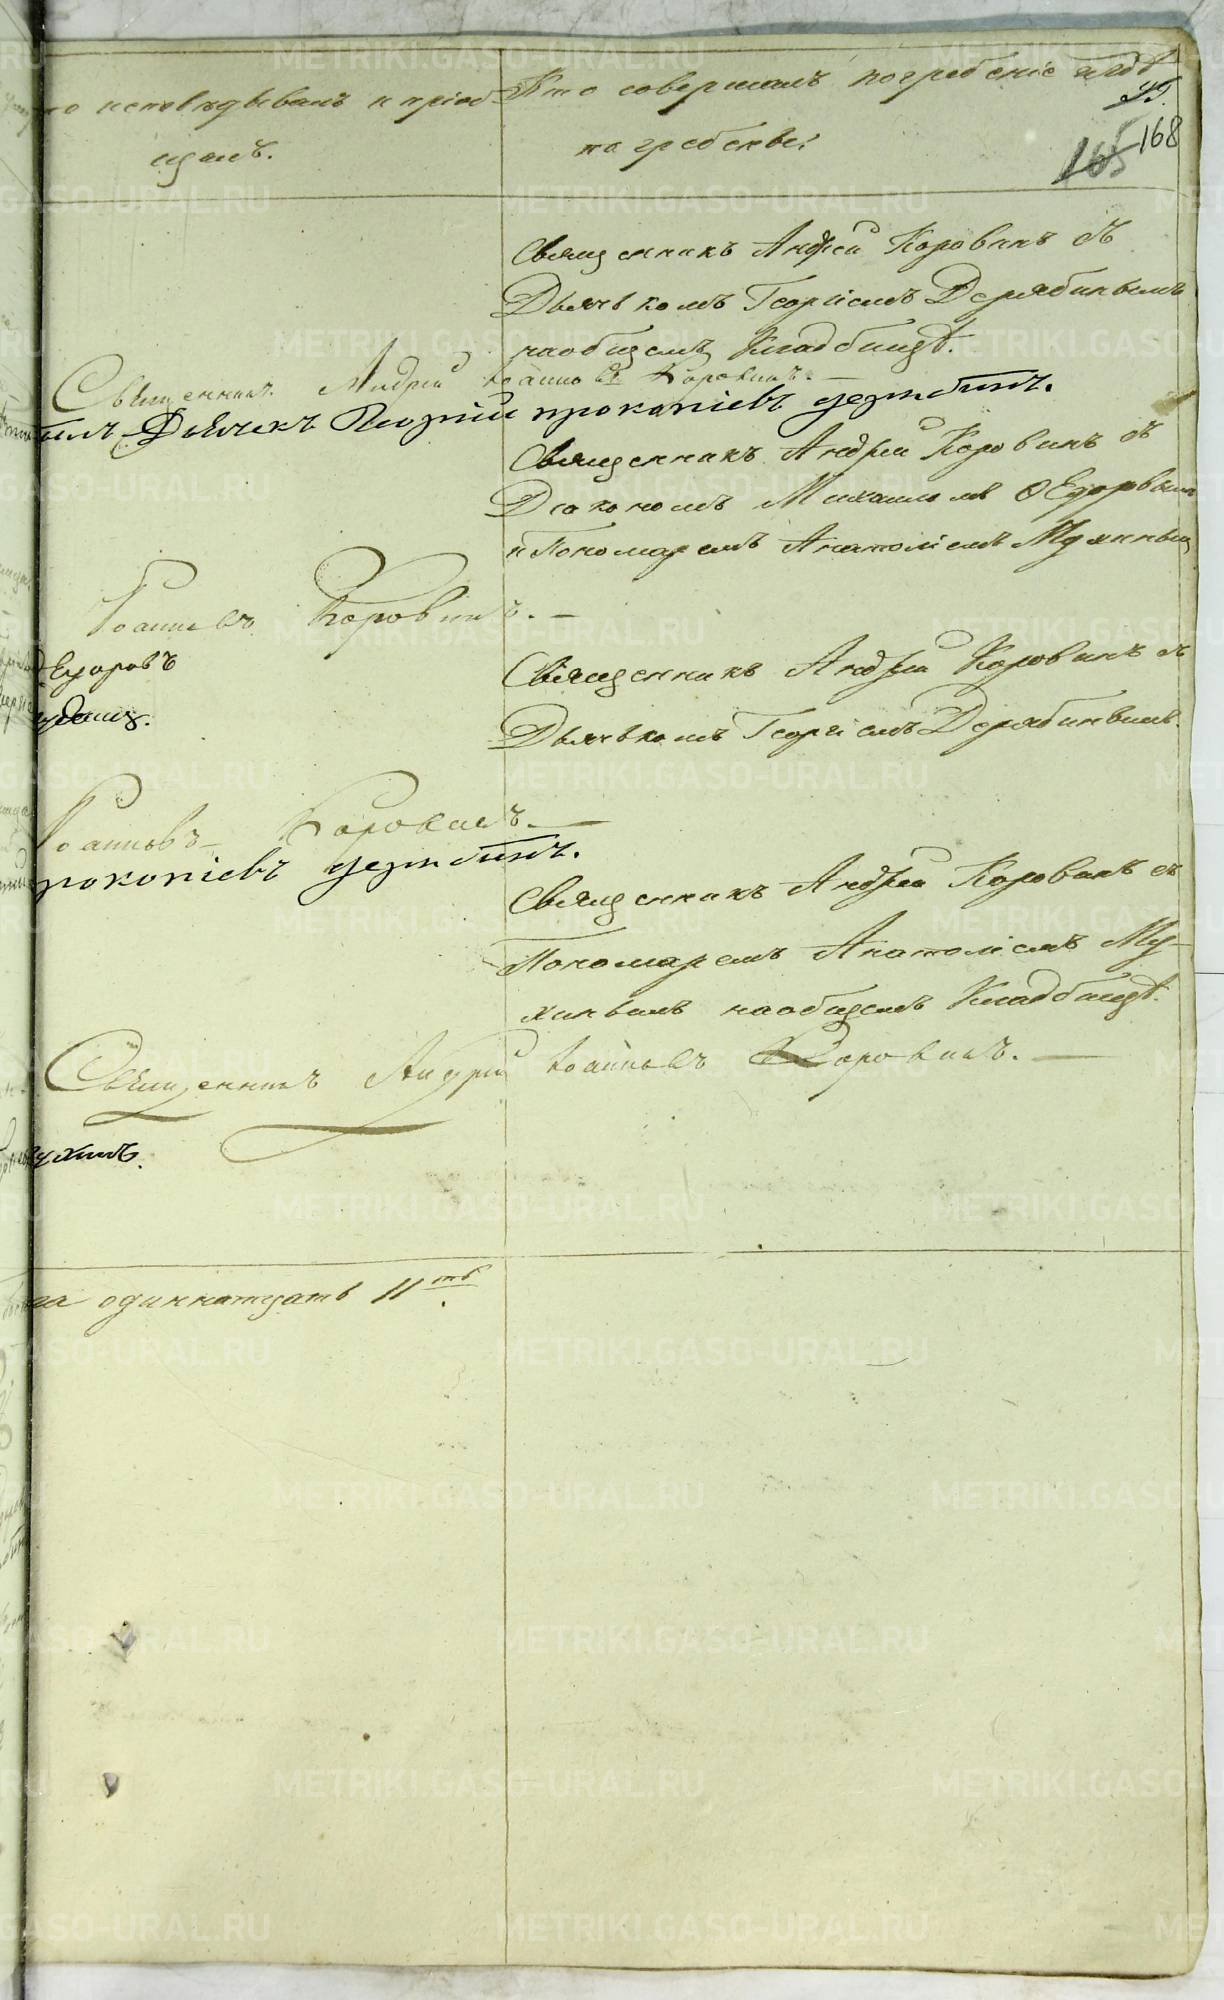 то исповѣдывалъ и пріоб-
щалъ.
Кто совершалъ погребеніе и гдѣ
погребены?
45.
165 168
Священникъ Андрей Коровинъ съ
Дьячькомъ Георгіемъ Дерябинымъ
наобщемъ Кладбищѣ.
Священникъ Андрей Іоанновъ Коровинъ. —
Дьячекъ Георгій прокопіевъ дерябинъ.
Священникъ Андрей Коровинъ съ
Діакономъ Михаиломъ Ѳедоровымъ
и Пономаремъ Анатоліемъ Мухинымъ
Іоанновъ Коровинъ. —
Ѳедоровъ
Священникъ Андрей Коровинъ съ
Дьячькомъ Георгіемъ Дерябинымъ.
Іоанновъ Коровинъ. —
прокопіевъ дерябинъ.
Священникъ Андрей Коровинъ съ
Пономаремъ Анатоліемъ Му-
хинымъ наобщемъ Кладбищѣ.
Священникъ Андрей Іоанновъ Коровинъ. —
ухинъ.
одиннатцать 11ть.
METRIKI.GASO-URAL.RU